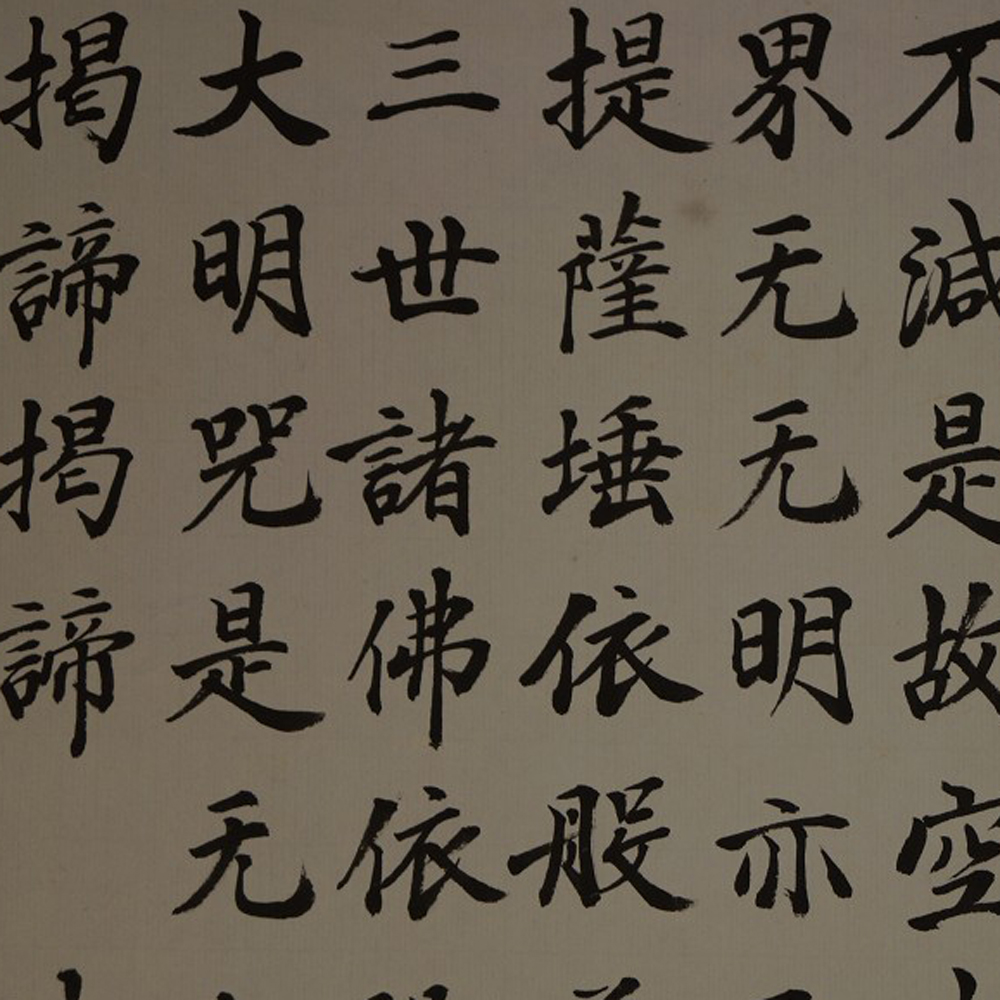 不減是故空
界无无明亦
提薩埵依般
三世諸佛依
大明咒是无
揭諦揭諦